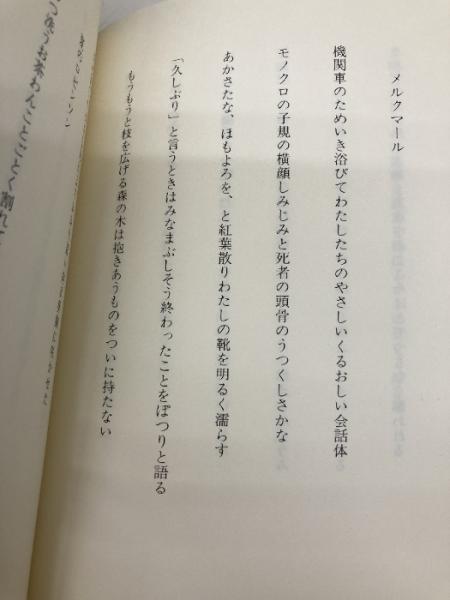 メルクマール
機関車のためいき浴びてわたしたちのやさしいくるおしい会話体
モノクロの子規の横顔しみじみと死者の頭骨のうつくしさかな
あかさたな、ほもよろを、と紅葉散りわたしの靴を明るく濡らす
「久しぶり」と言うときはみなまぶしそう終わったことをぽつりと語る
もうもうと枝を広げる森の木は抱きあうものをついに持たない
お茶わんことごとく割れて